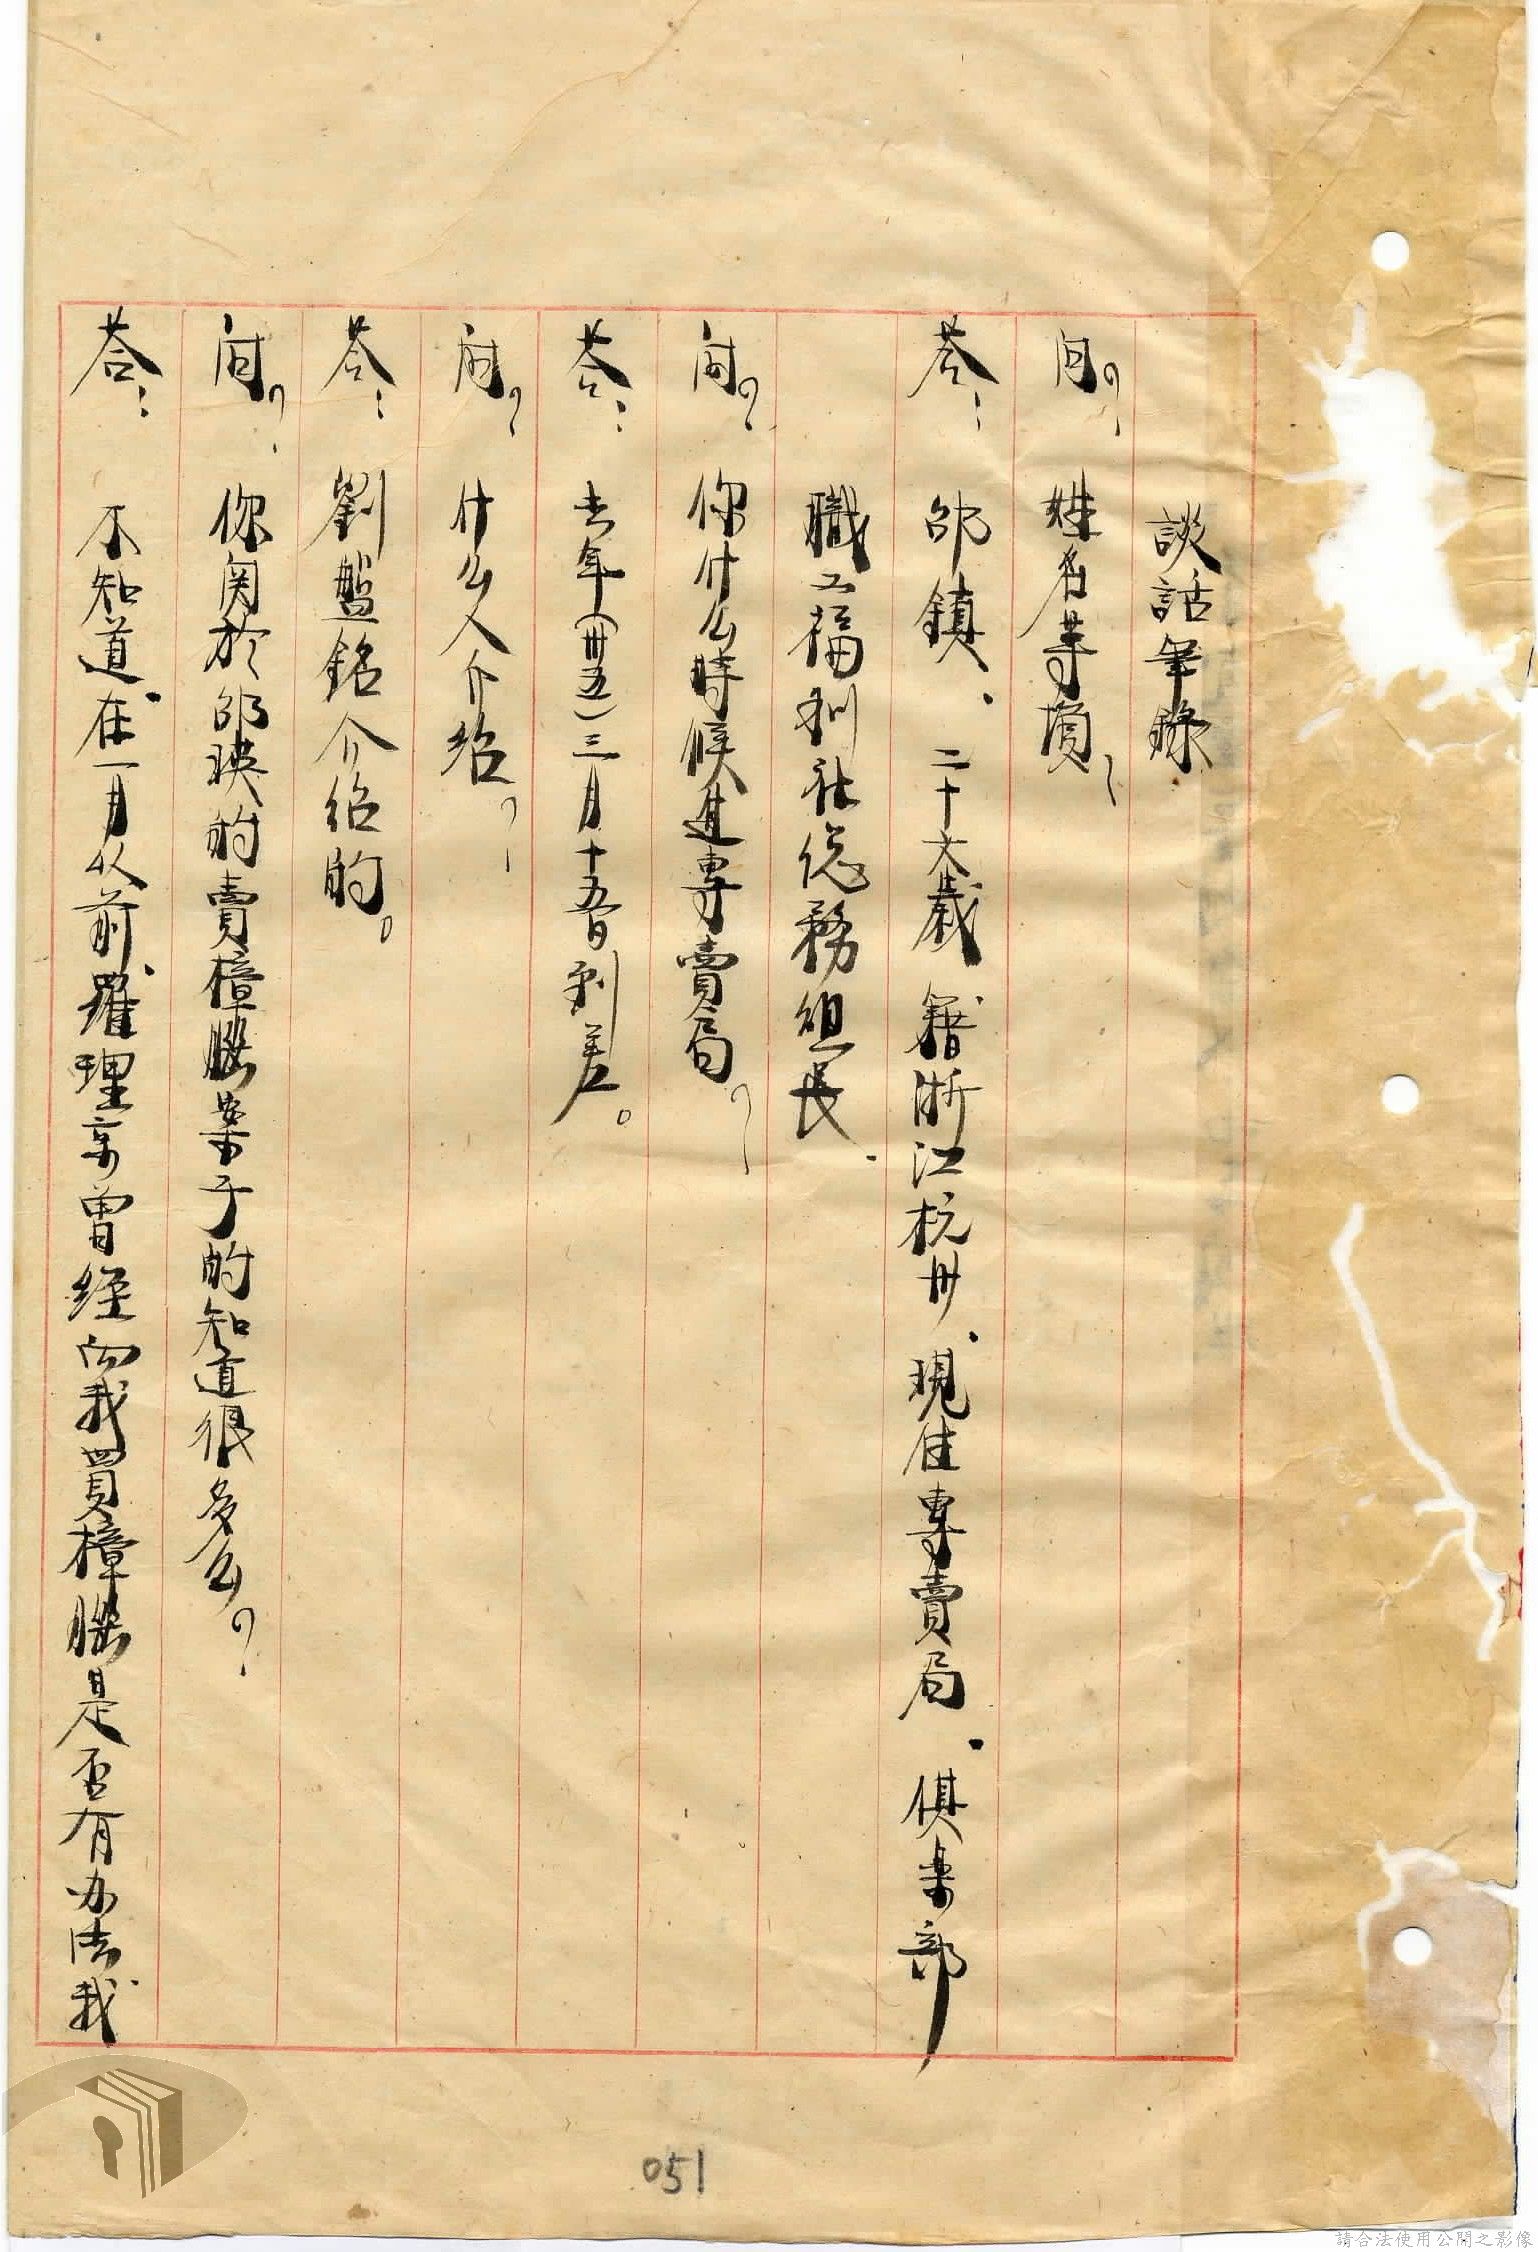 談話笔錄
问?：姓名等項、
荅：邵鎮、二十六歲 籍浙江杭州、現住專賣局、俱樂部
職工福利社總務組長.
问?：你什么時候進專賣局？
荅：去年(卅五)三月十五日到差。
问?：什么人介绍？
荅：劉盤銘介绍的。
问?：你関於邵映的賣樟腦案子的知道很多么？
荅：不知道、在一月以前、羅理京曾經向我買樟腦是否有办法我
051
請合法使用公開之影像